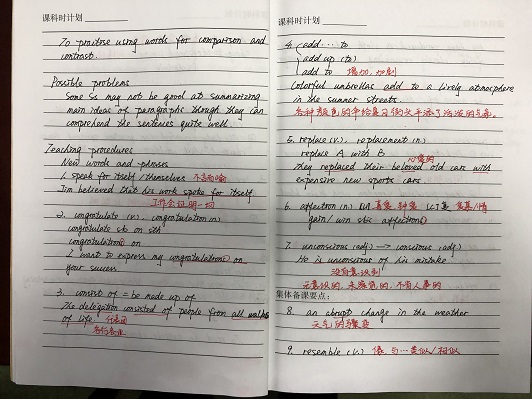 课科时计划
To practise using words for comparison and
contrast.
Possible problems
Some Ss may not be good at summarizing
main ideas of paragraphs though they can
comprehend the sentences quite well.
Teaching procedures
New words and phrases
1. speak for itself/themselves 不言而喻
Jim believed that his work spoke for itself.
工作会证明一切
2. congratulate (v.), congratulation (n)
congratulate sb on sth
congratulations on
I want to express my congratulations on
your success
3. consist of = be made up of
The delegation consisted of people from all walks
of life. 代表团
各行各业
课科时计划
4. add … to
add up (to)
add to 增加,加剧
Colorful umbrellas add to a lively atmosphere
in the summer streets.
各种颜色的伞给夏日街头平添了活泼的气氛.
5. replace (v.), replacement (n.)
replace A with B
心爱的
They replaced their beloved old cars with
expensive new sports cars.
6. affection (n)
gain / win sb's affections
7. unconscious (adj) → conscious (adj)
He is unconscious of his mistake
没有意识到
无意识的, 未察觉的, 不省人事的
集体备课要点:
8. an abrupt change in the weather
天气的骤变
9. resemble (v.) 像, 与…类似/相似